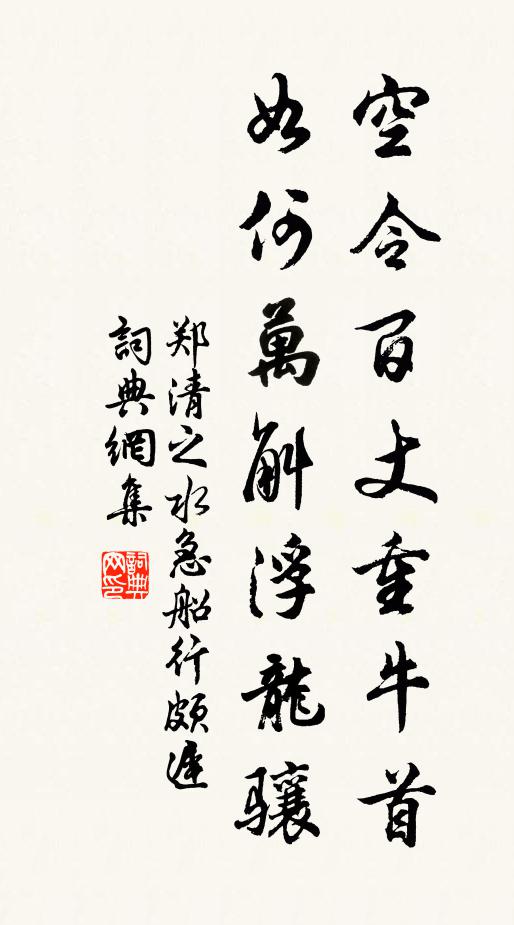 空令百丈重牛首
如何萬斛浮龍骧
郑清之水急船行頗遲
詞典網集
詞典文印